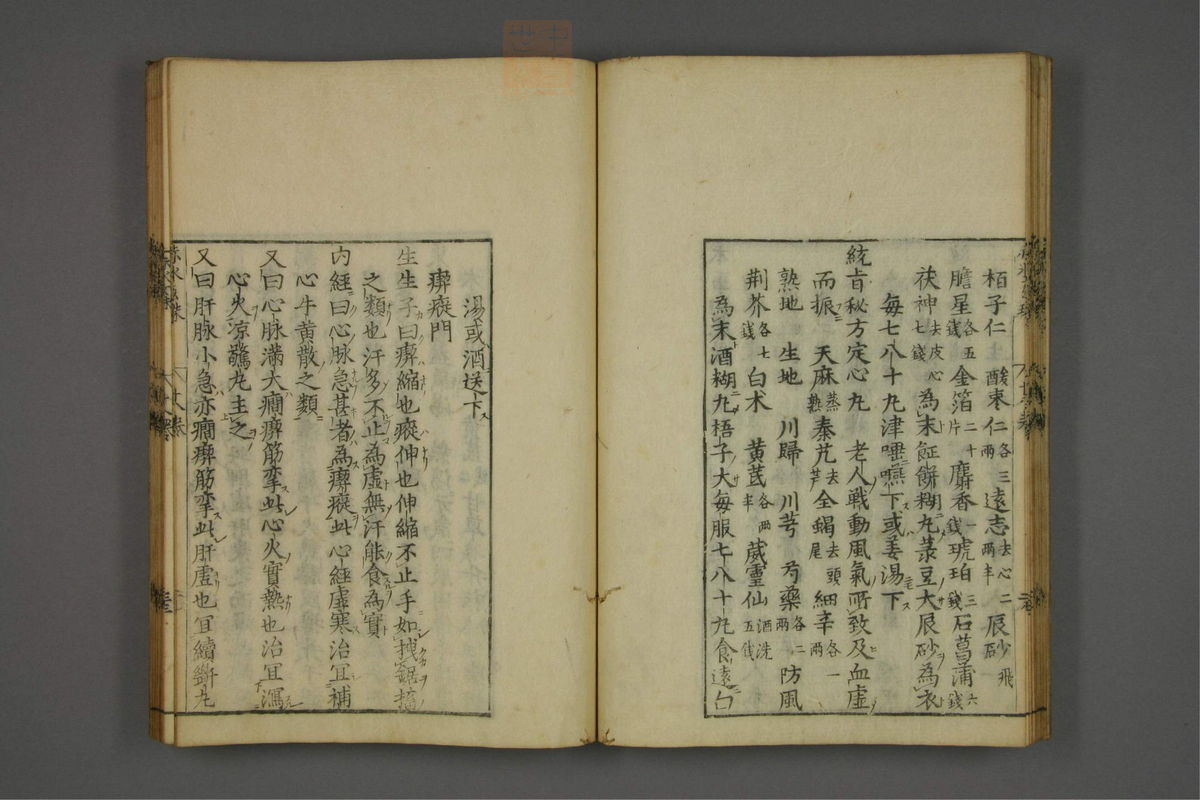 栢子仁 酸棗仁各三兩 遠志去心二兩半 辰砂飛
膽星各五錢 金箔二十片 麝香一錢 琥珀三錢 石菖蒲六錢
茯神去皮心七錢 為末餁餅糊丸菉豆大辰砂為衣
每七八十丸津唾嚥下或姜湯下
統旨秘方定心丸 老人戰動風氣所致及血虛
而振 天麻蒸熟 秦艽去芦 全蝎去頭尾 細辛各一兩
熟地 生地 川歸 川芎 芍藥各二兩 防風
荆芥各七錢 白术 黃芪各兩半 葳靈仙酒洗五錢
為末酒糊丸梧子大每服七八十丸食遠白
湯或酒送下
瘈瘲門
生生子曰瘈縮也瘲伸也伸縮不止手如拽鋸搐
之類也汗多不止為虛無汗能食為實
內經曰心脉急甚者為瘈瘲此心經虛寒治冝補
心牛黃散之類
又曰心脉滿大癇瘈筋攣此心火實熱也治冝瀉
心火涼驚丸主之
又曰肝脉小急亦癇瘈筋攣此肝虛也冝續斷丸
赤水玄珠